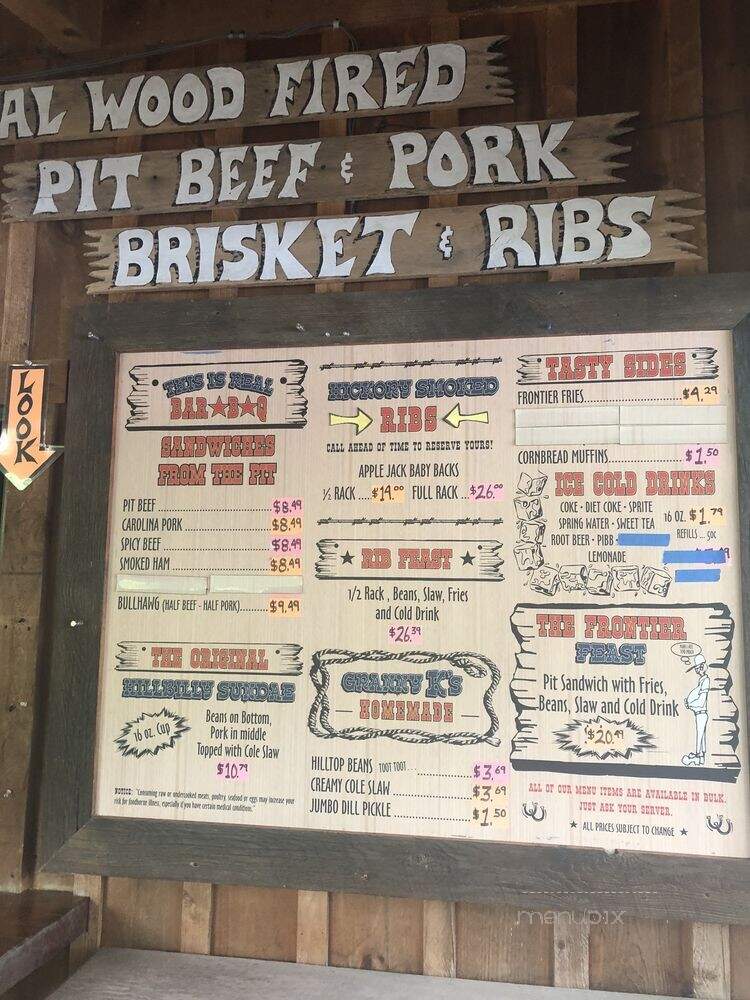 AL WOOD FIRED
PIT BEEF & PORK
BRISKET & RIBS
LOOK
THIS IS REAL
BAR★B★Q
SANDWICHES
FROM THE PIT
PIT BEEF $8.49
CAROLINA PORK $8.49
SPICY BEEF $8.49
SMOKED HAM $8.49
BULLHAWG (HALF BEEF - HALF PORK) $9.49
THE ORIGINAL
HILLBILLY SUNDAE
16 oz. Cup
Beans on Bottom,
Pork in middle
Topped with Cole Slaw
$10.79
NOTICE: "Consuming raw or undercooked meats, poultry, seafood or eggs may increase your
risk for foodborne illness, especially if you have certain medical conditions."
HICKORY SMOKED
RIBS
CALL AHEAD OF TIME TO RESERVE YOURS!
APPLE JACK BABY BACKS
½ RACK ... $19.00 FULL RACK ... $26.00
★ RIB FEAST ★
1/2 Rack , Beans, Slaw, Fries
and Cold Drink
$26.39
GRANNY K'S
HOMEMADE
HILLTOP BEANS TOOT TOOT $3.69
CREAMY COLE SLAW $3.69
JUMBO DILL PICKLE $1.50
TASTY SIDES
FRONTIER FRIES $4.29
CORNBREAD MUFFINS $1.50
ICE COLD DRINKS
COKE · DIET COKE · SPRITE
SPRING WATER · SWEET TEA 16 OZ. $1.79
ROOT BEER · PIBB · REFILLS ... 50¢
LEMONADE
THE FRONTIER
FEAST
Pit Sandwich with Fries,
Beans, Slaw and Cold Drink
$20.49
ALL OF OUR MENU ITEMS ARE AVAILABLE IN BULK.
JUST ASK YOUR SERVER.
★ ALL PRICES SUBJECT TO CHANGE ★
menupix